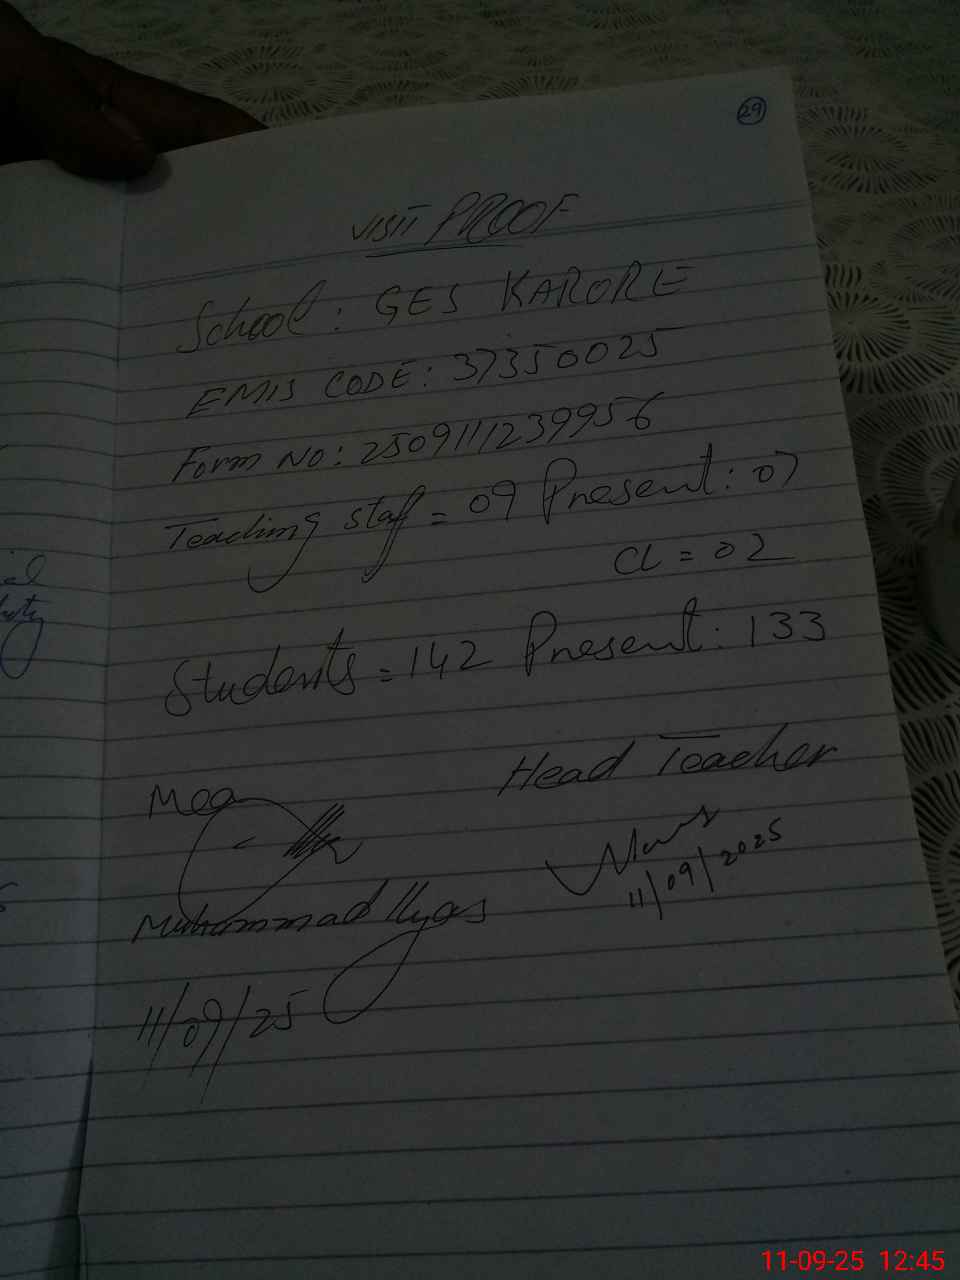 29
VISIT PROOF
School: GES KARORE
EMIS CODE: 37350025
Form NO: 2509111239956
Teaching staff = 09 Present: 07
CL = 02
Students = 142 Present: 133
Mea
Head Teacher
11/09/2025
Muhammad Ilyas
11/09/25
11-09-25 12:45